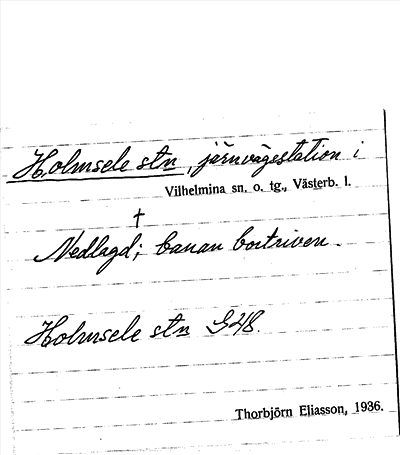 Holmsele stn, järnvägsstation i
Vilhelmina sn. o. tg., Västerb. l.
†
Nedlagd; banan bortriven.
Holmsele stn G248.
Thorbjörn Eliasson, 1936.